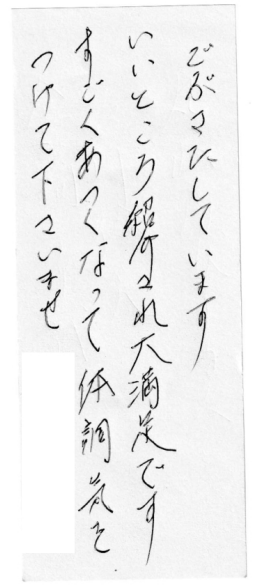 ごぶさたしています
いいところ紹介され大満足です
すごくあつくなって体調気を
つけて下さいませ